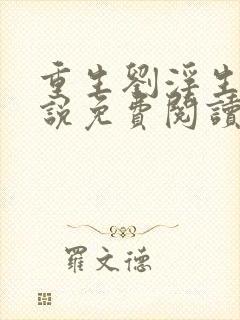 重生劉淫生
說免費閱讀
羅文德